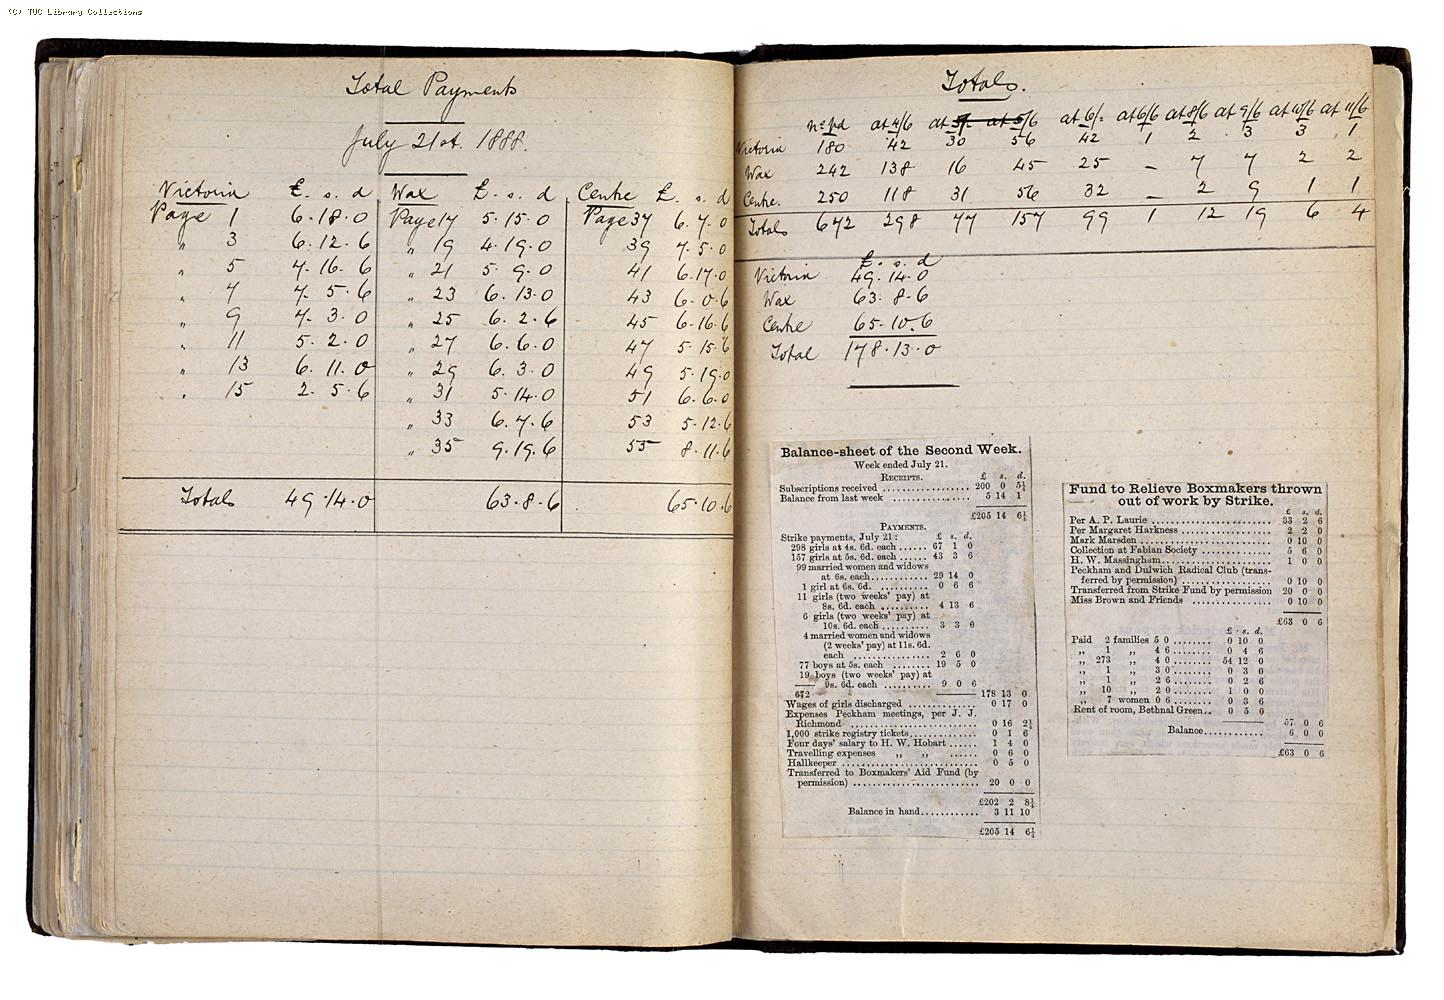 (C) TUC Library Collections
Total Payments
July 21st. 1888.
Victoria £. s. d Wax £. s. d Centre £. s. d
Page 1 6.18.0 Page 17 5.15.0 Page 37 6.7.0
" 3 6.12.6 " 19 4.19.0 39 7.5.0
" 5 7.16.6 " 21 5.9.0 41 6.17.0
" 7 7.5.6 " 23 6.13.0 43 6.0.6
" 9 7.3.0 " 25 6.2.6 45 6.16.6
" 11 5.2.0 " 27 6.6.0 47 5.15.6
" 13 6.11.0 " 29 6.3.0 49 5.19.0
" 15 2.5.6 " 31 5.14.0 51 6.6.0
" 33 6.7.6 53 5.12.6
" 35 9.19.6 55 8.11.6
Totals 49.14.0 63.8.6 65.10.6
Totals.
No pd at 4/6 at 5/- at 5/6 at 6/- at 6/6 at 8/6 at 9/6 at 10/6 at 11/6
Victoria 180 42 30 56 42 1 2 3 3 1
Wax 242 138 16 45 25 - 7 7 2 2
Centre. 250 118 31 56 32 - 2 9 1 1
Totals 672 298 77 157 99 1 12 19 6 4
£. s. d
Victoria 49.14.0
Wax 63.8.6
Centre 65.10.6
Total 178.13.0
Balance-sheet of the Second Week.
Week ended July 21.
RECEIPTS. £ s. d.
Subscriptions received .................. 200 0 5¼
Balance from last week .................. 5 14 1
£205 14 6¼
PAYMENTS.
Strike payments, July 21: £ s. d.
298 girls at 4s. 6d. each ...... 67 1 0
157 girls at 5s. 6d. each ...... 43 3 6
99 married women and widows
at 6s. each............ 29 14 0
1 girl at 6s. 6d. ............ 0 6 6
11 girls (two weeks' pay) at
8s. 6d. each .......... 4 13 6
6 girls (two weeks' pay) at
10s. 6d. each .......... 3 3 0
4 married women and widows
(2 weeks' pay) at 11s. 6d.
each ................ 2 6 0
77 boys at 5s. each ........ 19 5 0
19 boys (two weeks' pay) at
9s. 6d. each .......... 9 0 6
672 178 13 0
Wages of girls discharged .............. 0 17 0
Expenses Peckham meetings, per J. J.
Richmond .......................... 0 16 2½
1,000 strike registry tickets.............. 0 1 6
Four days' salary to H. W. Hobart ...... 1 4 0
Travelling expenses ,, ,, ...... 0 6 0
Hallkeeper ............................ 0 5 0
Transferred to Boxmakers' Aid Fund (by
permission) .......................... 20 0 0
£202 2 8½
Balance in hand............ 3 11 10
£205 14 6¼
Fund to Relieve Boxmakers thrown
out of work by Strike.
£ s. d.
Per A. P. Laurie ........................ 33 2 6
Per Margaret Harkness .................. 2 2 0
Mark Marsden .......................... 0 10 0
Collection at Fabian Society .............. 5 6 0
H. W. Massingham...................... 1 0 0
Peckham and Dulwich Radical Club (trans-
ferred by permission) .................. 0 10 0
Transferred from Strike Fund by permission 20 0 0
Miss Brown and Friends ................ 0 10 0
£63 0 6
£ s. d.
Paid 2 families 5 0 ........ 0 10 0
,, 1 ,, 4 6 ........ 0 4 6
,, 273 ,, 4 0 ........ 54 12 0
,, 1 ,, 3 0 ........ 0 3 0
,, 1 ,, 2 6 ........ 0 2 6
,, 10 ,, 2 0 ........ 1 0 0
,, 7 women 0 6 ........ 0 3 6
Rent of room, Bethnal Green.. 0 5 0
57 0 6
Balance............ 6 0 0
£63 0 6